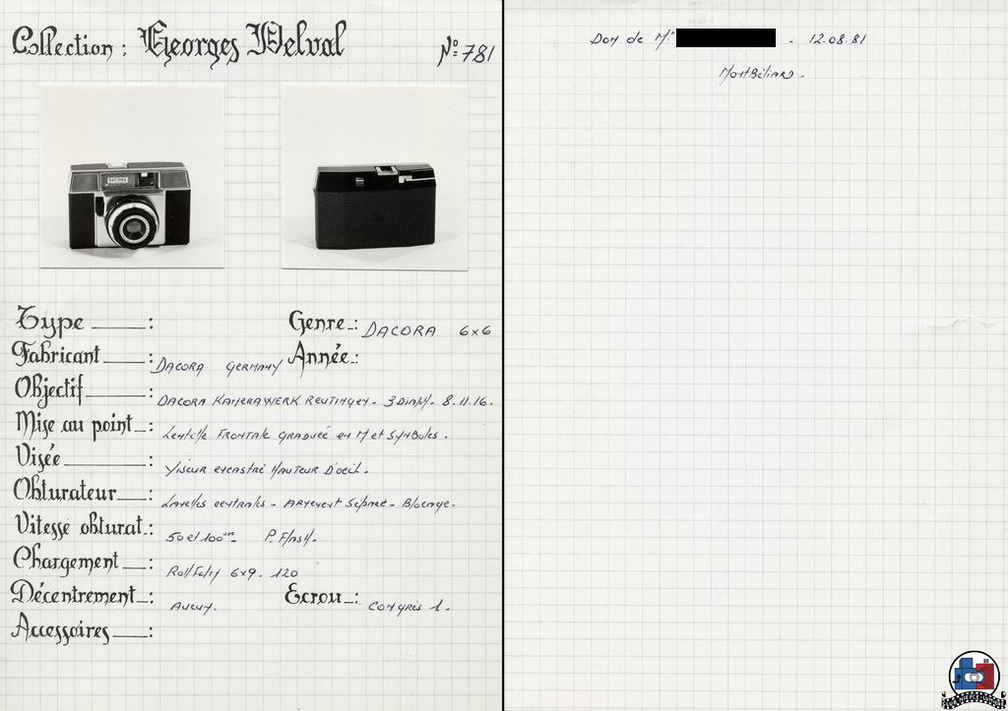 Collection : Georges Delval N° 781
DACORA
Type : Genre : DACORA 6x6
Fabricant : DACORA GERMANY Année :
Objectif : DACORA KAMERAWERK REUTLINGEN. 3 Diaph. 8.11.16.
Mise au point : Lentille FRONTALE GRADUÉE en M et SYMBoles.
Visée : Viseur encastré HAUTEUR D'oeil.
Obturateur : Lamelles centrales - ARMEMENT Séparé - Blocage.
Vitesse obturat : 50 et 100ème P. Flash.
Chargement : Roll Film 6x9. 120
Décentrement : Aucun. Ecrou : Congrès 1.
Accessoires :
Don de Mr . 12.08.81
MontBéliard.